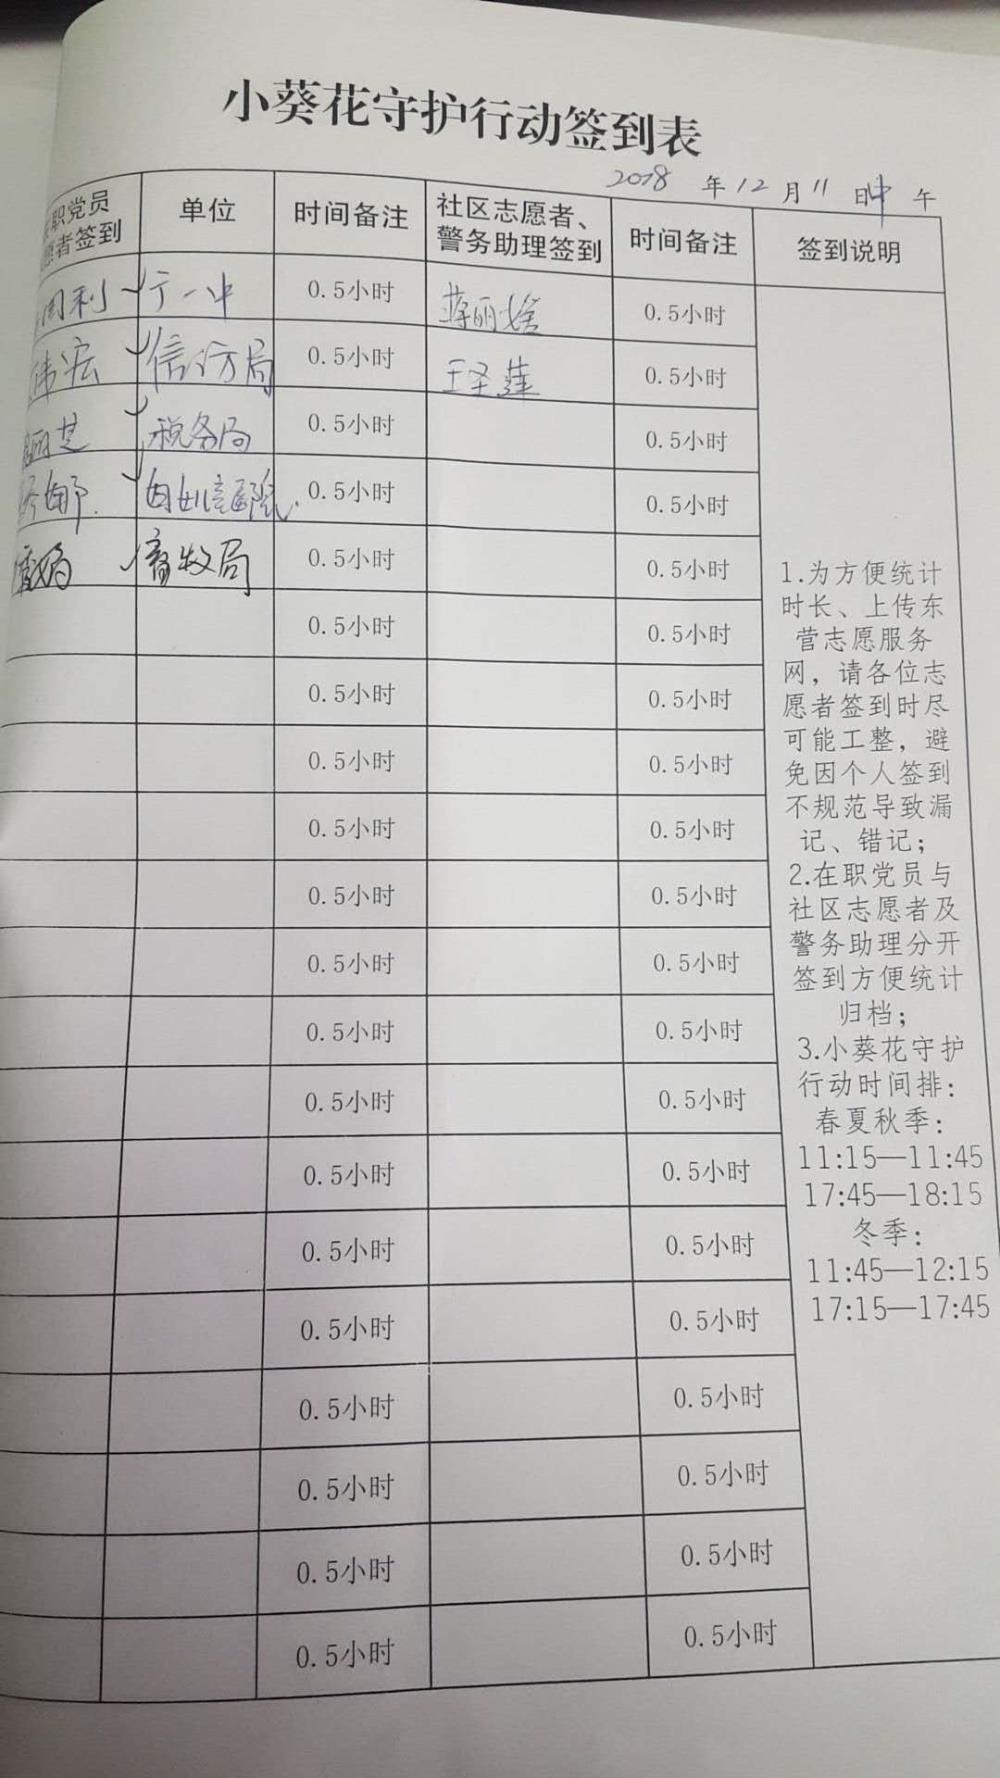 小葵花守护行动签到表
2018 年 12 月 11 日 中 午
职党员
愿者签到
单位
时间备注
社区志愿者、
警务助理签到
时间备注
签到说明
周利 广一中 0.5小时 蒋丽 0.5小时
伟宏 信访局 0.5小时 王圣莲 0.5小时
丽芝 税务局 0.5小时 0.5小时
娜 0.5小时 0.5小时
畜牧局 0.5小时 0.5小时
0.5小时 0.5小时
0.5小时 0.5小时
0.5小时 0.5小时
0.5小时 0.5小时
0.5小时 0.5小时
0.5小时 0.5小时
0.5小时 0.5小时
0.5小时 0.5小时
0.5小时 0.5小时
0.5小时 0.5小时
0.5小时 0.5小时
0.5小时 0.5小时
0.5小时 0.5小时
0.5小时 0.5小时
0.5小时 0.5小时
1.为方便统计
时长、上传东
营志愿服务
网，请各位志
愿者签到时尽
可能工整，避
免因个人签到
不规范导致漏
记、错记；
2.在职党员与
社区志愿者及
警务助理分开
签到方便统计
归档；
3.小葵花守护
行动时间排：
春夏秋季：
11:15—11:45
17:45—18:15
冬季：
11:45—12:15
17:15—17:45